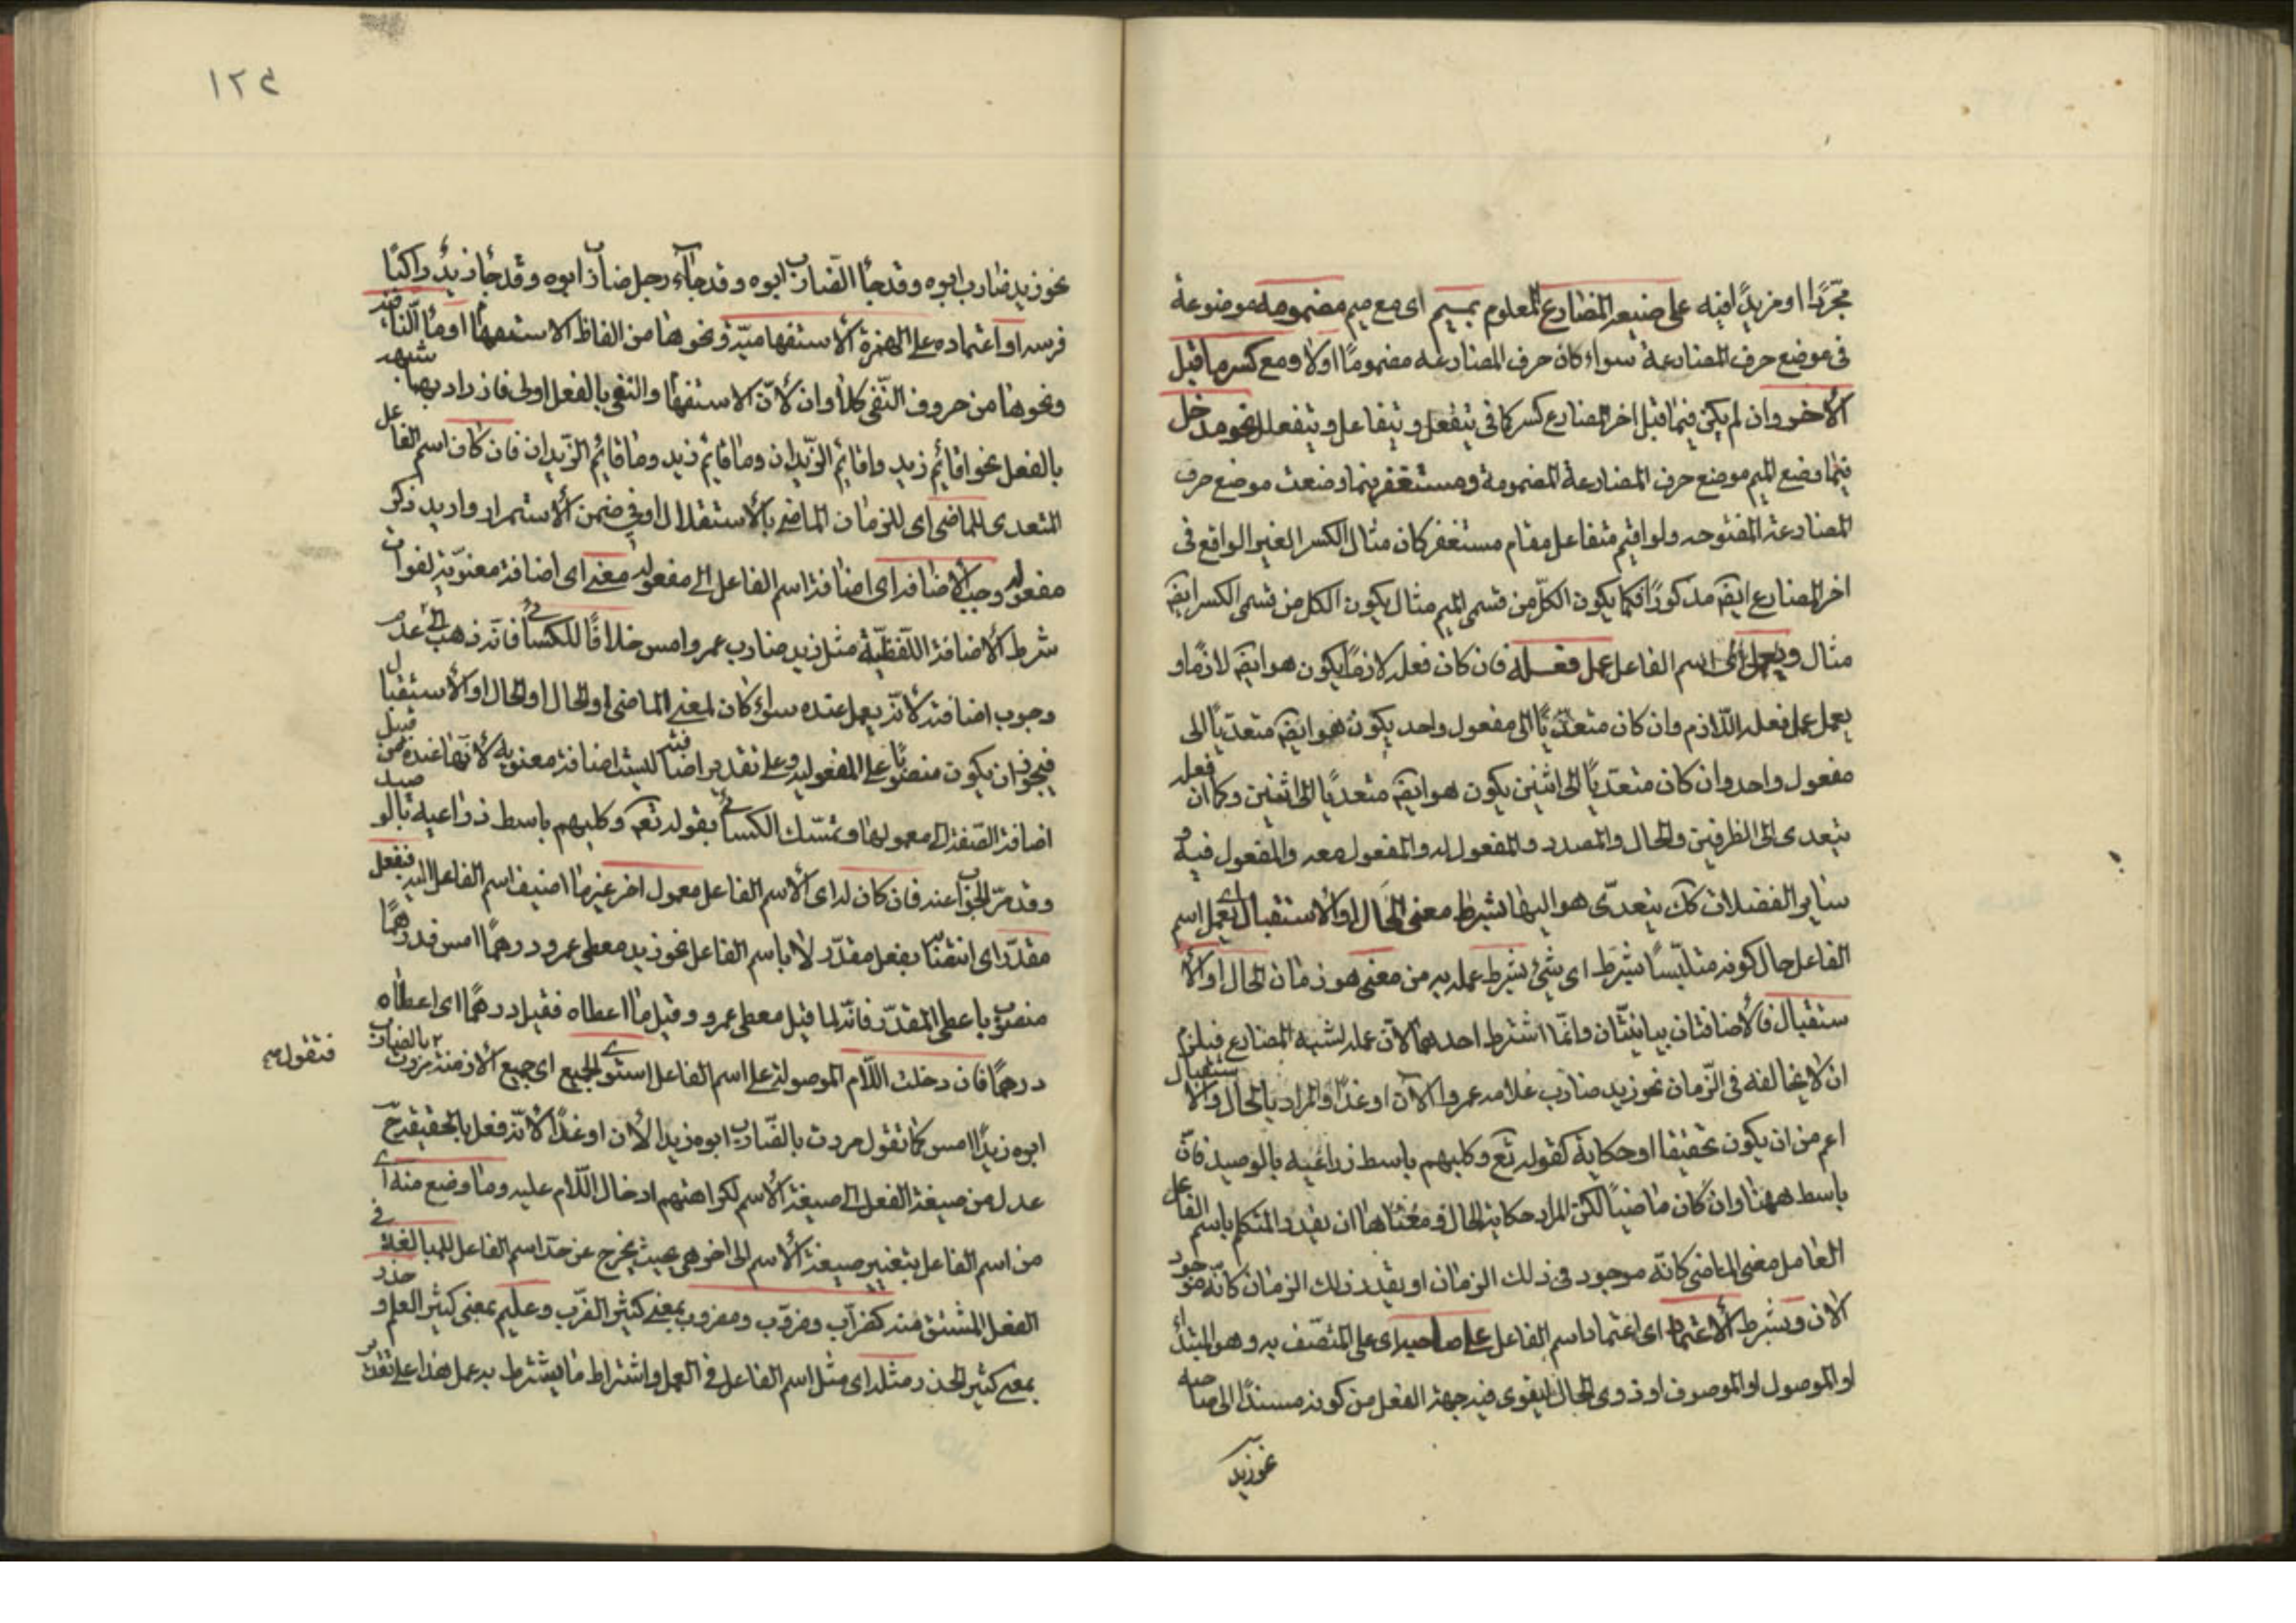 مجرّدا او مزيدًا فيه على صيغة المضارع المعلوم بميم اى مع ميم مضمومه موضوعة
فى موضع حرف المضارعة سواء كان حرف المضارعه مضموما اولا ومع كسر ما قبل
الأخر وان لم يكن فيما قبل اخر المضارع كسر كما فى يتفعل ويتفاعل ويتفعلل نحو مدخل
فيما وضع الميم موضع حرف المضارعة المضمومة ومستغفر فيما وضعت موضع حرف
المضارعة المفتوحه ولو اقيم متفاعل مقام مستغفر كان مثال الكسر الغير الواقع فى
اخر المضارع ايضه مذكورًا فكما يكون الكلّ من قسمى الميم مثال يكون الكل من قسمى الكسر ايضه
مثال ويعمل اى اسم الفاعل عمل فعله فان كان فعله لازمًا يكون هو ايضه لازمًا و
يعمل عمل فعله اللّازم وان كان متعدّيًا الى مفعول واحد يكون هو ايضه متعدّيًا الى
مفعول واحد وان كان متعدّيًا الى اثنين يكون هو ايضه متعدّيًا الى اثنين وكما ان فعله
يتعدى الى الظرفين والحال والمصدر والمفعول له والمفعول معه والمفعول فيه و
سائر الفضلات كك يتعدّى هو اليها بشرط معنى الحال او الاستقبال اى يعمل اسم
الفاعل حال كونه متلبّسًا بشرط اى شئ يشرط عمله به من معنى هو زمان الحال او الأ
ستقبال فالأضافتان بيانيّتان وانّما اشترط احدهما لانّ عمله لشبه المضارع فيلزم
ان لا يخالفه فى الزّمان نحو زيد ضارب غلامه عمروا الآن او غدًا والمراد بالحال والاستقبال
اعم من ان يكون تحقيقا او حكاية كقوله تع وكلبهم باسط ذراعيه بالوصيد فانّ
باسط ههنا وان كان ماضيًا لكن المراد حكاية الحال ومعناها ان يقدر المتكلم باسم الفاعل
العامل معنى الماضى كانّه موجود فى ذلك الزمان او يقدر ذلك الزمان كانّه موجود
الان ويشرط الأعتماد اى اعتماد اسم الفاعل على صاحبه اى على المتّصف به وهو المبتدأ
او الموصول او الموصوف او ذوى الحال ليقوى فيه جهة الفعل من كونه مسندًا الى صاحبه
نحو زيد
١٢٤
نحو زيد ضارب ابوه وقد جاءَ الضارب ابوه وقد جاءَ رجل ضارب ابوه وقد جاءَ زيدٌ راكبًا
فرسه او اعتماده على الهمزة الأستفهاميّة ونحوها من الفاظ الاستفهام او ما النافية
ونحوها من حروف النّفى كلا وان لأنّ الاستفهام والنفى بالفعل اولى فازداد بهما شبهه
بالفعل نحو اقائم زيد واقائم الزّيدان وما قائم زيد وما قائم الزّيدان فان كان اسم الفاعل
المتعدى للماضى اى للزمان الماضى بالأستقلال او فى ضمن الأستمرار واريد ذكر
مفعوله وجب الأضافه اى اضافة اسم الفاعل الى مفعوله معنى اى اضافة معنويّة لفوات
شرط الأضافة اللّفظيّة مثل زيد ضارب عمرو امس خلافًا للكسائى فانّه ذهب الى عدم
وجوب اضافته لأنّه يعمل عنده سواء كان لمعنى الماضى او الحال او الأستقبال
فيجوز ان يكون منصوبًا على المفعولية وعلى تقدير اضافته ليست اضافة معنويه لأنّها عنده من قبيل
اضافة الصّفة الى معمولها وتمسّك الكسائى بقوله تع وكلبهم باسط ذراعيه بالوصيد
وقد مرّ الجواب عنه فان كان له اى لأسم الفاعل معمول اخر غير ما اضيف اسم الفاعل اليه فبفعل
مقدّر اى انتصابه بفعل مقدّر لا باسم الفاعل نحو زيد معطى عمرو درهمًا امس فدرهمًا
منصوب باعطى المقدّر فانّه لما قيل معطى عمرو وقيل ما اعطاه فقيل درهمًا اى اعطاه
درهمًا فان دخلت اللّام الموصولة على اسم الفاعل استوى الجميع اى جميع الأزمنة مررت بالضارب
فتقول
ابوه زيدًا امس كما تقول مررت بالضّارب ابوه زيدا الأن او غدًا لانّه فعل بالحقيقة ح
عدل من صيغة الفعل الى صيغة الأسم لكراهتهم ادخال اللّام عليه وما وضع منه اى
من اسم الفاعل بتغيير صيغة الأسم الى اخرى بحيث يخرج عن حدّ اسم الفاعل للمبالغة فى
الفعل المشتق منه كضرّاب وضروب ومضروب بمعنى كثير الضّرب وعليم بمعنى كثير العلم وحذر
بمعنى كثير الحذر مثله اى مثل اسم الفاعل فى العمل واشتراط ما يشترط به عمل هذا على تقدير